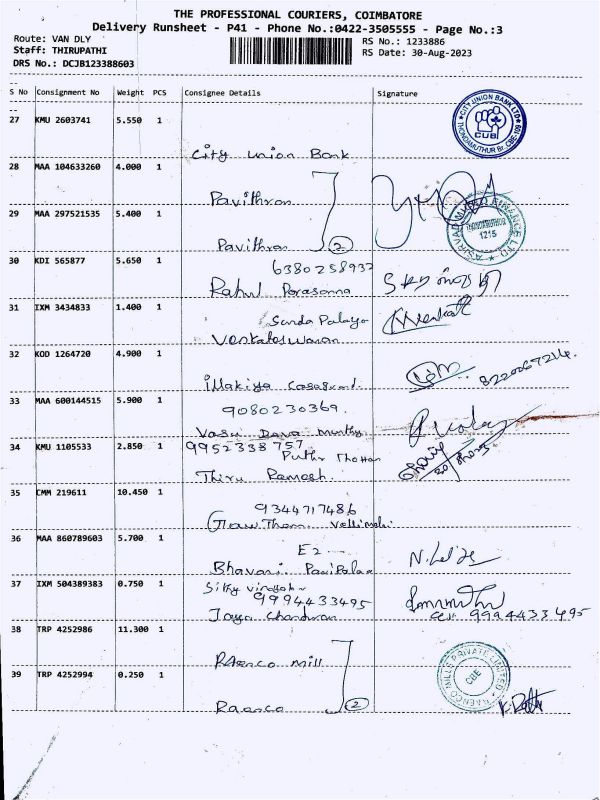 THE PROFESSIONAL COURIERS, COIMBATORE
Delivery Runsheet - P41 - Phone No.:0422-3505555 - Page No.:3
Route: VAN DLY
RS No.: 1233886
Staff: THIRUPATHI
RS Date: 30-Aug-2023
DRS No.: DCJB123388603
S No Consignment No Weight PCS Consignee Details Signature
27 KMU 2603741 5.550 1
CITY UNION BANK LTD
CUB
THONDAMUTHUR Br. CBE-109
City Union Bank
28 MAA 104633260 4.000 1
Pavithran
29 MAA 297521535 5.400 1
FINANCE LTD
THONDAMUTHUR
1215
Pavithran 2
30 KDI 565877 5.650 1
6380258937
Rahul Porasanna
31 IXM 3434833 1.400 1
Sunda Palayo
Venkateswaran
32 KOD 1264720 4.900 1
8220067214
Illakiya
33 MAA 600144515 5.900 1
9080230369.
Vasu Deva Murthy
34 KMU 1105533 2.850 1
9952338757
Puthu Thottam
Thiru Ramesh.
35 CMM 219611 10.450 1
9344717486
Gowtham. Vellimalai
36 MAA 860789603 5.700 1
E2
Bhavani
37 IXM 504389383 0.750 1
9994433495
Jaya Chandran
Cell 9994433495
38 TRP 4252986 11.300 1
RAenco Mill
MILLS PRIVATE LIMITED
CBE
39 TRP 4252994 0.250 1
Raenco 2